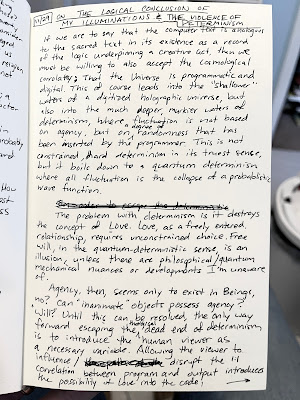 11/29
ON THE LOGICAL CONCLUSION OF
MY ILLUMINATIONS & THE VIOLENCE OF
DETERMINISM
If we are to say that the computer text is analogous
to the sacred text in its existence as a record
of the logic underpinning a creative Act, then we
must be willing to also accept the cosmological
correlate; That the Universe is programmatic and
digital. This of course leads into the "shallower"
waters of a digitized holographic universe, but
also into the much deeper, murkier waters of
determinism, where fluctuation is not based
on agency, but on a degree of randomness that has
been inserted by the programmer. This is not
constrained, hard determinism in its truest sense,
but it boils down to a quantum determinism
where all fluctuation is the collapse of a probabilistic
wave function.
The problem with determinism is it destroys
the concept of Love. Love, as a freely entered
relationship, requires unconstrained choice. Free
will, in the quantum-deterministic sense, is an
illusion, unless there are philosophical/quantum
mechanical nuances or developments I'm unaware
of.
Agency, then, seems only to exist in Beings,
no? Can "inanimate" objects possess agency?
Will? Until this can be resolved, the only way
forward escaping the dead end of determinism,
is to introduce the human viewer as
a necessary variable. Allowing the viewer to
influence / disrupt the 1:1
correlation between program and output introduces
the possibility of Love into the code. →